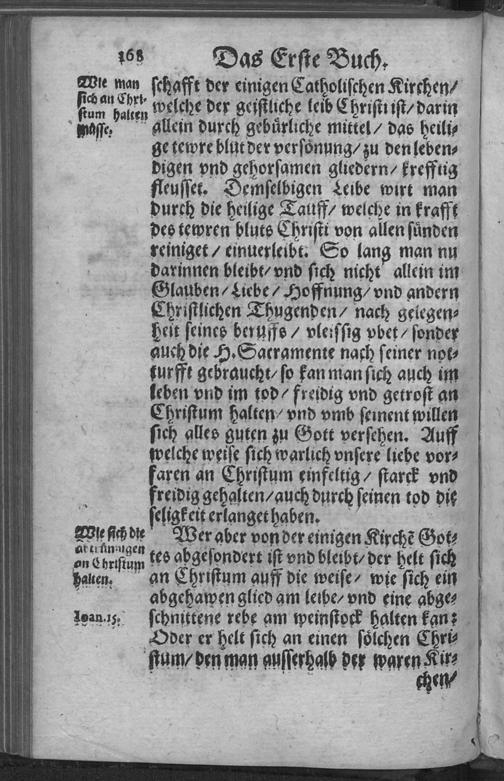 168
Das Erste Buch.
Wie man
sich an Chri-
stum halten
müsse.
schafft der einigen Catholischen Kirchen/
welche der geistliche leib Christi ist/ darin
allein durch gebürliche mittel/ das heili-
ge tewre blut der versönung/ zu den leben-
digen vnd gehorsamen gliedern/ krefftig
fleusset. Demselbigen Leibe wirt man
durch die heilige Tauff/ welche in krafft
des tewren bluts Christi von allen sünden
reiniget/ einuerleibt. So lang man nu
darinnen bleibt/ vnd sich nicht allein im
Glauben/ Liebe/ Hoffnung/ vnd andern
Christlichen Thugenden/ nach gelegen-
heit seines beruffs/ vleissig vbet/ sonder
auch die H. Sacramente nach seiner not-
turfft gebraucht/ so kan man sich auch im
leben vnd im tod/ freidig vnd getrost an
Christum halten/ vnd vmb seinent willen
sich alles guten zu Gott versehen. Auff
welche weise sich warlich vnsere liebe vor-
faren an Christum einfeltig/ starck vnd
freidig gehalten/ auch durch seinen tod die
seligkeit erlanget haben.
Wie sich die
abtrünnigen
an Christum
halten.
Ioan. 15.
Wer aber von der einigen Kirchē Got-
tes abgesondert ist vnd bleibt/ der helt sich
an Christum auff die weise/ wie sich ein
abgehawen glied am leibe/ vnd eine abge-
schnittene rebe am weinstock halten kan:
Oder er helt sich an einen sölchen Chri-
stum/ den man ausserhalb der waren Kir-
chen/